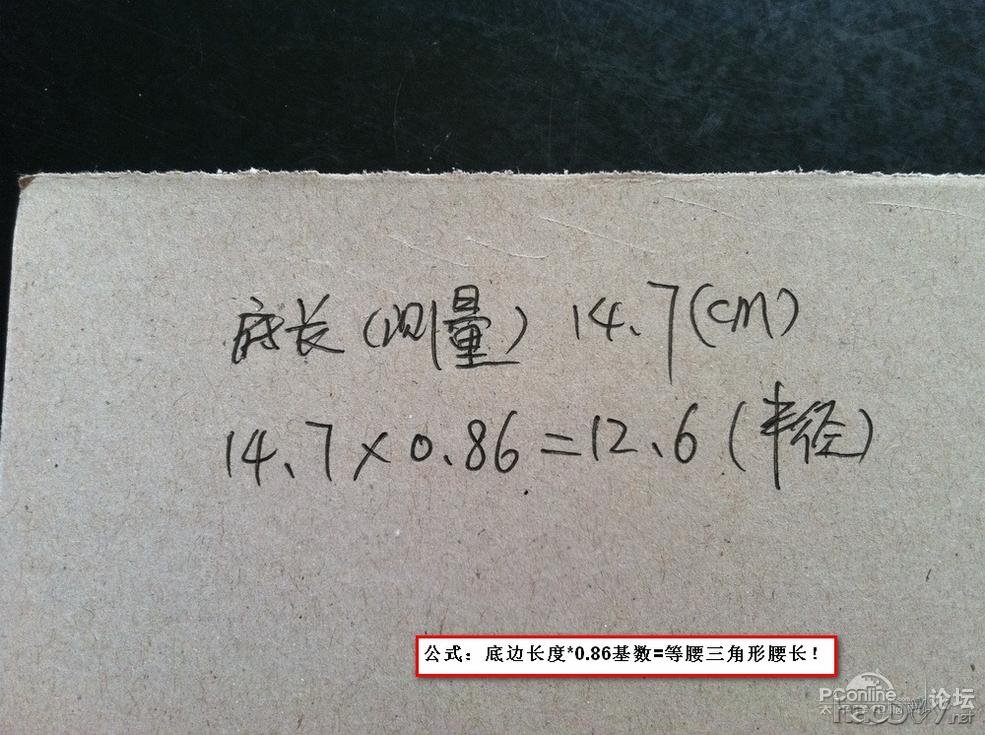 底长(测量) 14.7(cm)
14.7×0.86=12.6(半径)
公式：底边长度*0.86基数=等腰三角形腰长！
PConline 论坛